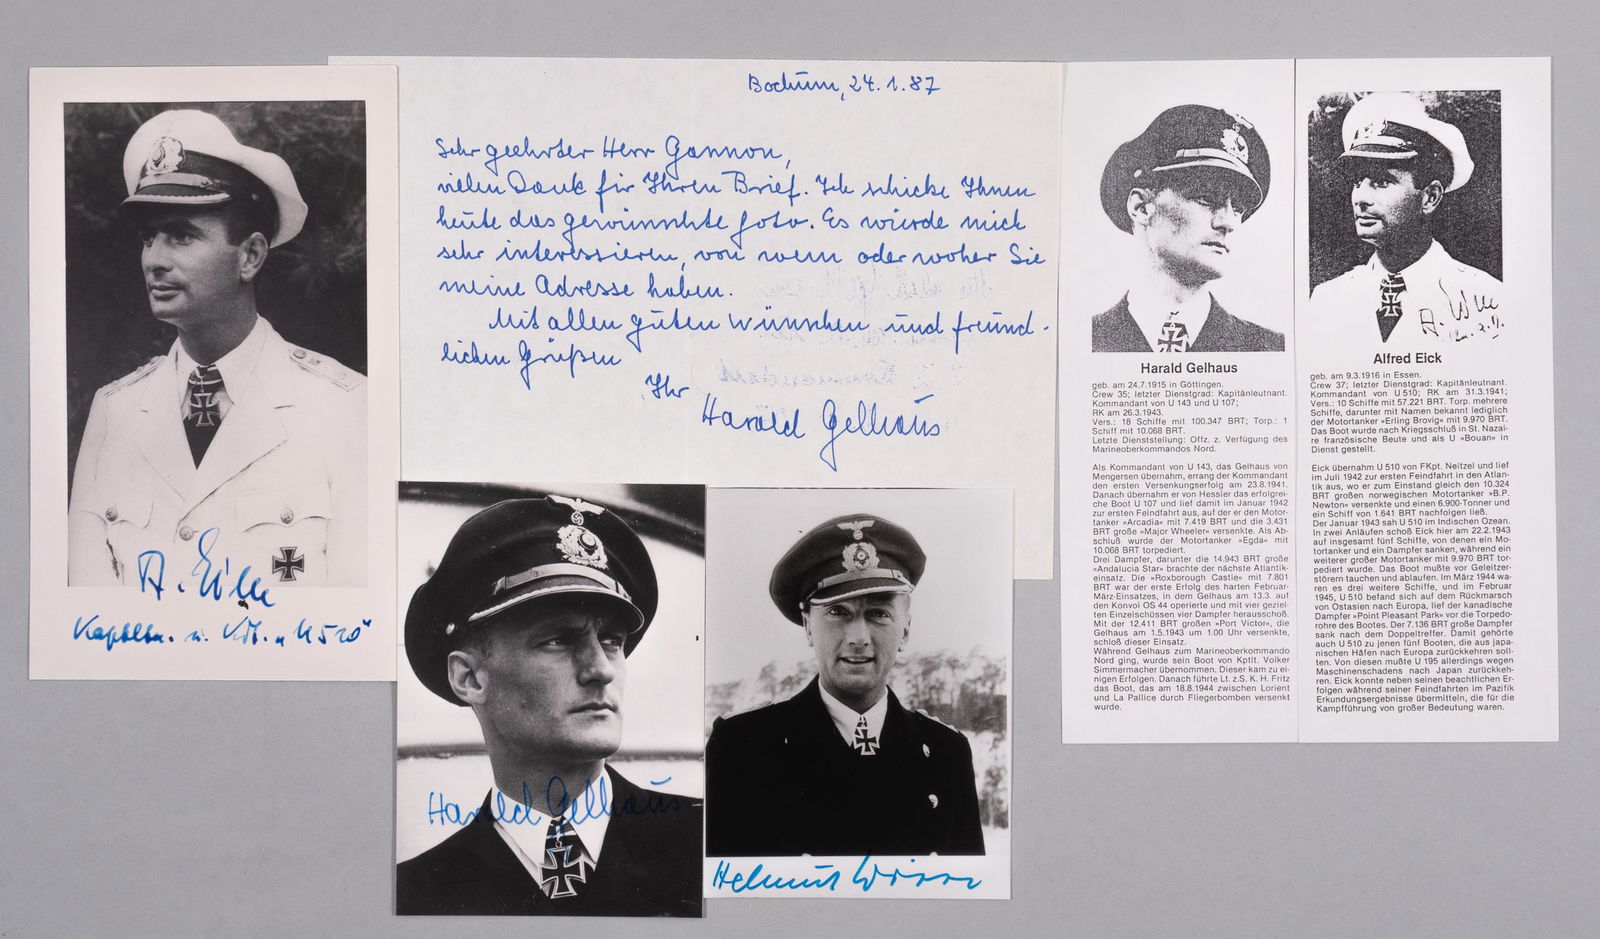 A. Eick
Kaptltn. u. Kdt. „U 510"
Bochum, 24.1.87
Sehr geehrter Herr Gannon,
vielen Dank für Ihren Brief. Ich schicke Ihnen
heute das gewünschte Foto. Es würde mich
sehr interessieren, von wem oder woher Sie
meine Adresse haben.
Mit allen guten Wünschen und freund-
lichen Grüßen
Ihr
Harald Gelhaus
Harald Gelhaus
Helmut Witte
Harald Gelhaus
geb. am 24.7.1915 in Göttingen.
Crew 35; letzter Dienstgrad: Kapitänleutnant.
Kommandant von U 143 und U 107;
RK am 26.3.1943.
Vers.: 18 Schiffe mit 100.347 BRT; Torp.: 1
Schiff mit 10.068 BRT.
Letzte Dienststellung: Offz. z. Verfügung des
Marineoberkommandos Nord.
Als Kommandant von U 143, das Gelhaus von
Mengersen übernahm, errang der Kommandant
den ersten Versenkungserfolg am 23.8.1941.
Danach übernahm er von Hessler das erfolgrei-
che Boot U 107 und lief damit im Januar 1942
zur ersten Feindfahrt aus, auf der er den Motor-
tanker »Arcadia« mit 7.419 BRT und die 3.431
BRT große »Major Wheeler« versenkte. Als Ab-
schluß wurde der Motortanker »Egda« mit
10.068 BRT torpediert.
Drei Dampfer, darunter die 14.943 BRT große
»Andalucia Star« brachte der nächste Atlantik-
einsatz. Die »Roxborough Castle« mit 7.801
BRT war der erste Erfolg des harten Februar-
März-Einsatzes, in dem Gelhaus am 13.3. auf
den Konvoi OS 44 operierte und mit vier geziel-
ten Einzelschüssen vier Dampfer herausschoß.
Mit der 12.411 BRT großen »Port Victor«, die
Gelhaus am 1.5.1943 um 1.00 Uhr versenkte,
schloß dieser Einsatz.
Während Gelhaus zum Marineoberkommando
Nord ging, wurde sein Boot von Kptlt. Volker
Simmermacher übernommen. Dieser kam zu ei-
nigen Erfolgen. Danach führte Lt. z.S. K. H. Fritz
das Boot, das am 18.8.1944 zwischen Lorient
und La Pallice durch Fliegerbomben versenkt
wurde.
A. Eick
Alfred Eick
geb. am 9.3.1916 in Essen.
Crew 37; letzter Dienstgrad: Kapitänleutnant.
Kommandant von U 510; RK am 31.3.1941;
Vers.: 10 Schiffe mit 57.221 BRT. Torp. mehrere
Schiffe, darunter mit Namen bekannt lediglich
der Motortanker »Erling Brovig« mit 9.970 BRT.
Das Boot wurde nach Kriegsschluß in St. Nazai-
re französische Beute und als U »Bouan« in
Dienst gestellt.
Eick übernahm U 510 von FKpt. Neitzel und lief
im Juli 1942 zur ersten Feindfahrt in den Atlan-
tik aus, wo er zum Einstand gleich den 10.324
BRT großen norwegischen Motortanker »B.P.
Newton« versenkte und einen 6.900-Tonner und
ein Schiff von 1.641 BRT nachfolgen ließ.
Der Januar 1943 sah U 510 im Indischen Ozean.
In zwei Anläufen schoß Eick hier am 22.2.1943
auf insgesamt fünf Schiffe, von denen ein Mo-
tortanker und ein Dampfer sanken, während ein
weiterer großer Motortanker mit 9.970 BRT tor-
pediert wurde. Das Boot mußte vor Geleitzer-
störern tauchen und ablaufen. Im März 1944 wa-
ren es drei weitere Schiffe, und im Februar
1945, U 510 befand sich auf dem Rückmarsch
von Ostasien nach Europa, lief der kanadische
Dampfer »Point Pleasant Park« vor die Torpedo-
rohre des Bootes. Der 7.136 BRT große Dampfer
sank nach dem Doppeltreffer. Damit gehörte
auch U 510 zu jenen fünf Booten, die aus japa-
nischen Häfen nach Europa zurückkehren soll-
ten. Von diesen mußte U 195 allerdings wegen
Maschinenschadens nach Japan zurückkeh-
ren. Eick konnte neben seinen beachtlichen Er-
folgen während seiner Feindfahrten im Pazifik
Erkundungsergebnisse übermitteln, die für die
Kampfführung von großer Bedeutung waren.